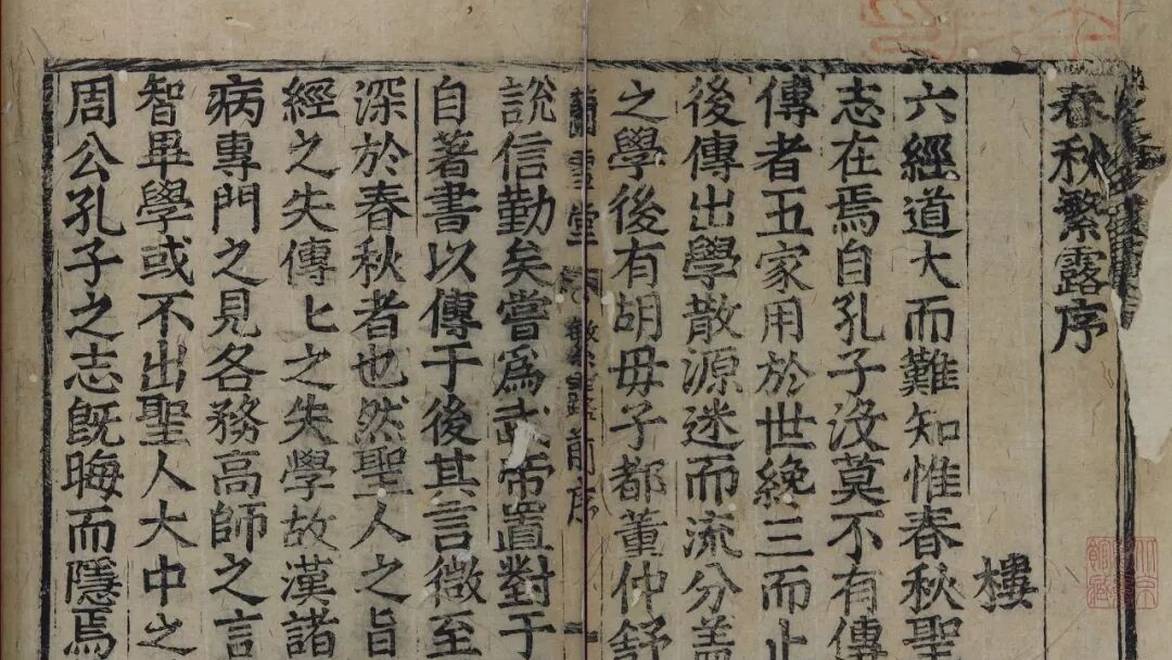 春秋繁露序
樓
六經道大而難知惟春秋聖
志在焉自孔子没莫不有傳
傳者五家用於世絶三而止
後傳出學散源迷而流分蓋
之學後有胡毋子都董仲舒
蘭雪堂
繁露前序
説信勤矣嘗爲武帝置對于
自著書以傳于後其言微至
深於春秋者也然聖人之旨
經之失傳匕之失學故漢諸
病專門之見各務高師之言
智畢學或不出聖人大中之
周公孔子之志旣晦而隱焉